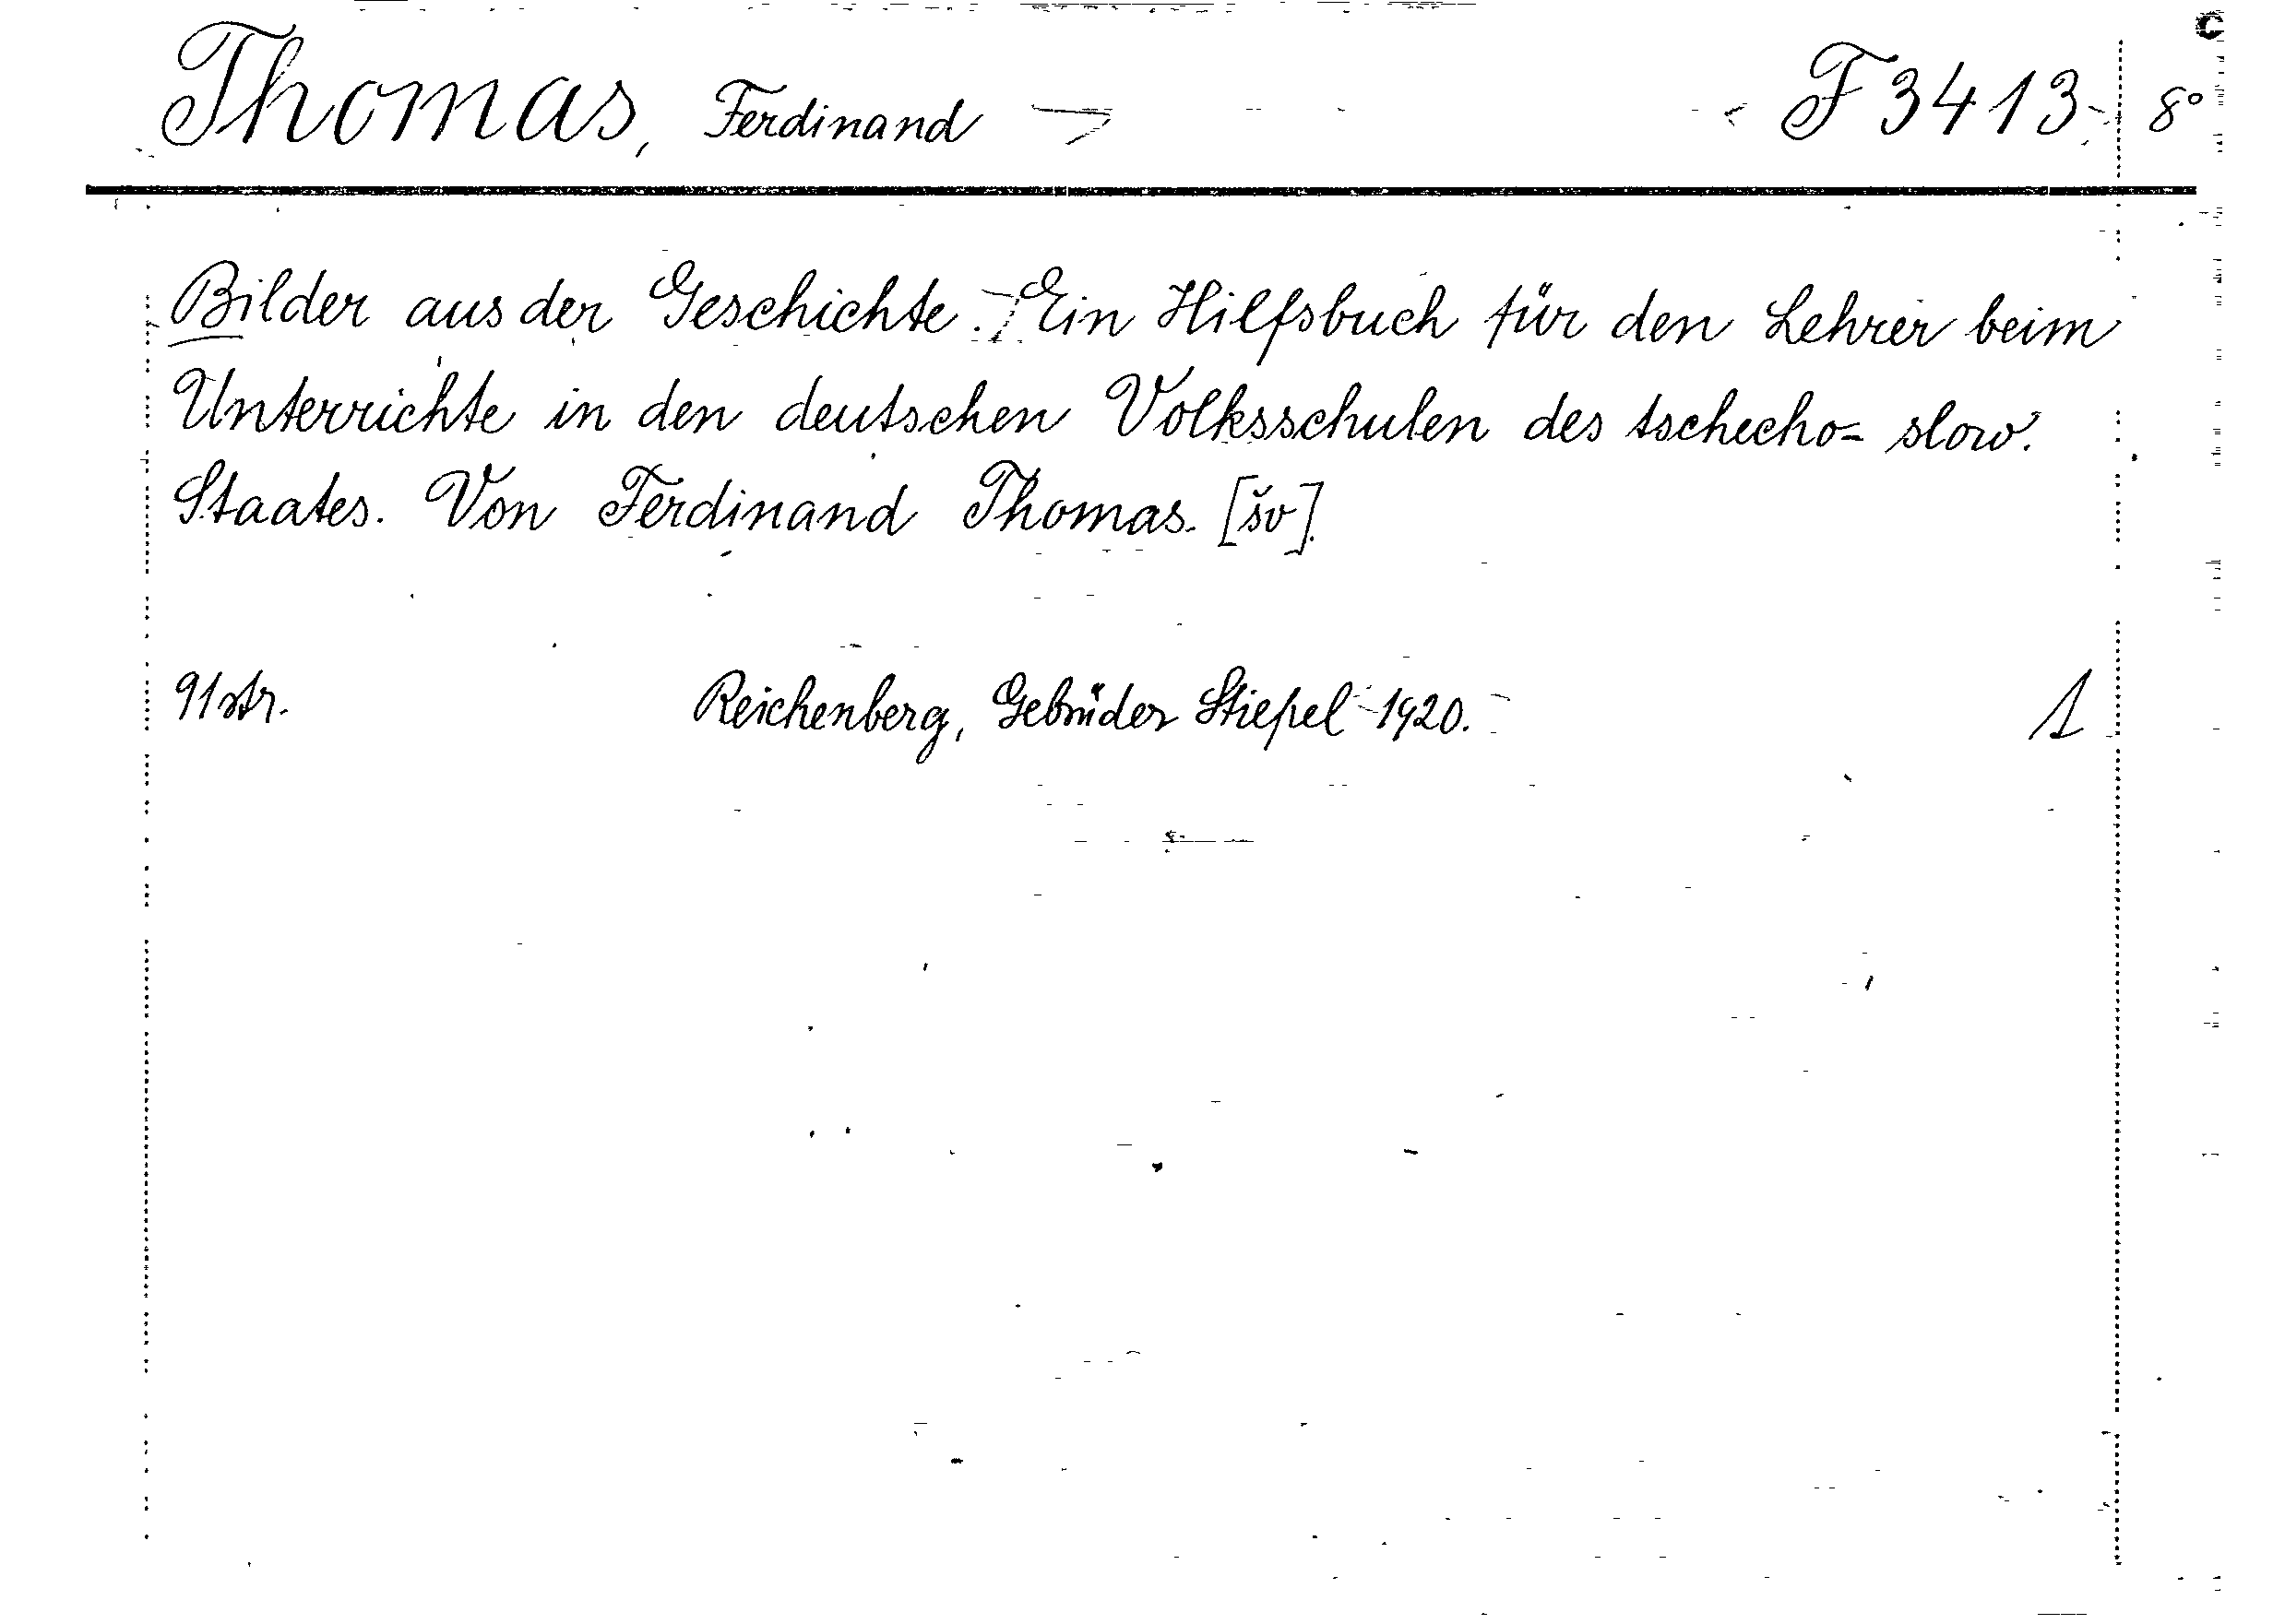 Thomas, Ferdinand F 3413 8°
Bilder aus der Geschichte. Ein Hilfsbuch für den Lehrer beim
Unterrichte in den deutschen Volksschulen des tschecho-slow.
Staates. Von Ferdinand Thomas. [šv].
91 str. Reichenberg, Gebrüder Stiepel 1920. 1